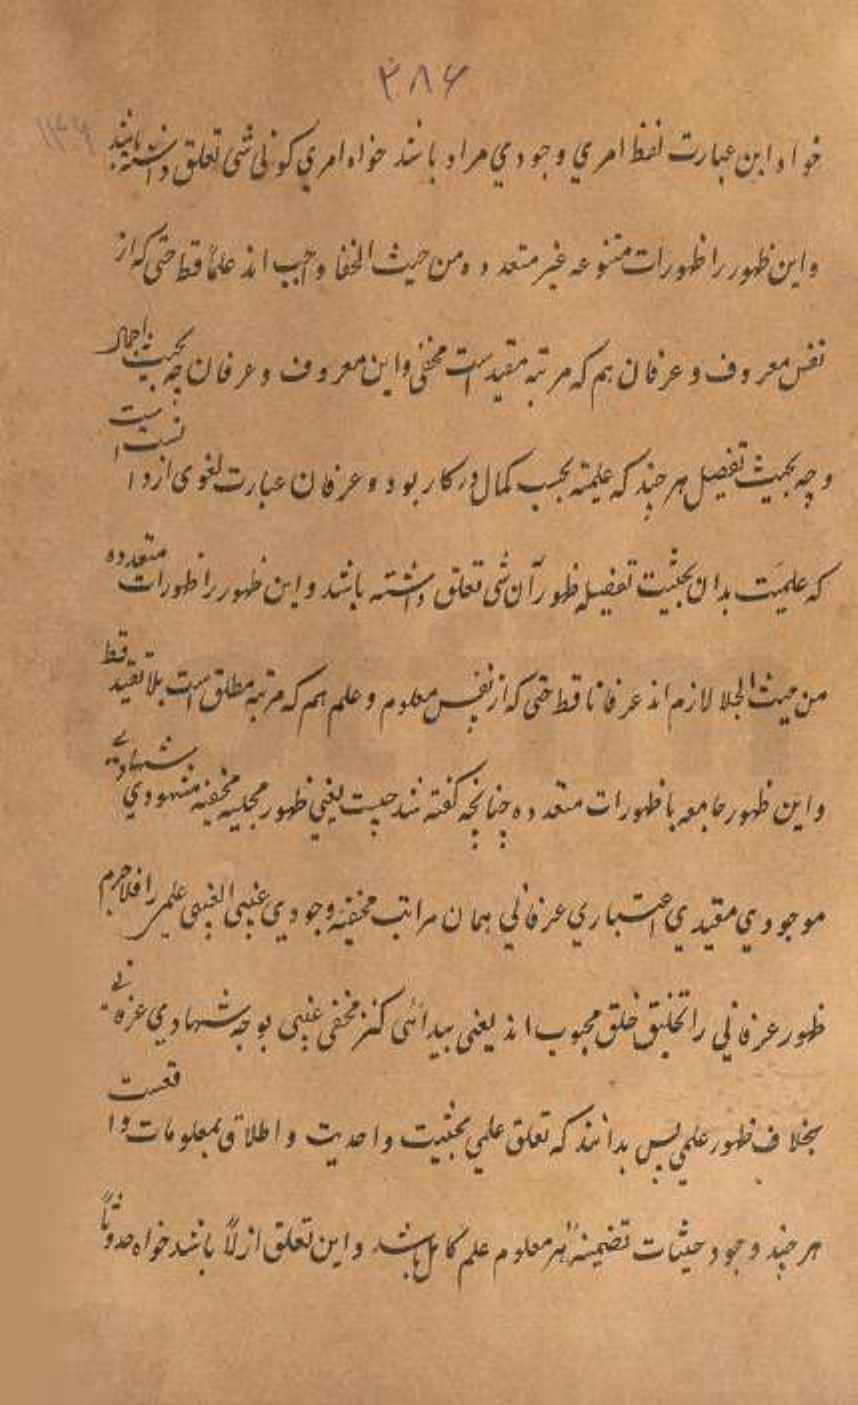 ۳۸۶
خواه این عبارت لفظ امري وجودي مراد باشد خواه امري کونی شی تعلق داشته باشد
واین ظهور را ظهورات متنوعه غیر متعدده من حیث الخفا واجب اند علماً فقط حتی که از
نفس معروف و عرفان هم که مرتبه مقید است مخفی واین معروف و عرفان چه بحیث اجمال
و چه بحیث تفصیل هر چند که علیمته بحسب کمال در کار بود و عرفان عبارت لغوی از دانست است
که علمیت بدان بحیثیت تفصیله ظهور آن شی تعلق داشته باشد واین ظهور را ظهورات متعدده
من حیث الجلا لازم اند عرفانا فقط حتی که از نفس معلوم و علم هم که مرتبه مطلق است بلا تقید فقط
واین ظهور جامعه با ظهورات متعدده چنانچه گفته شد چیست یعنی ظهور مجلیه مخفیه مشهودي شهادیے
موجودي مقیدي اعتباري عرفاني همان مراتب مخفیه وجودي غیبی الغیبی علمی را فلاجرم
ظهور عرفاني را تخلیق خلق محبوب اند یعنی پیدائی کنز مخفی غیبی بوجه شهادي عرفانے
بخلاف ظهور علمي پس بدانند که تعلق علمي بحیثیت واحدیت و اطلاق بمعلومات واقعست
هر چند وجود حیثات تضمینه هر معلوم علم کامل باشد واین تعلق ازلاً باشد خواه حدوثاً